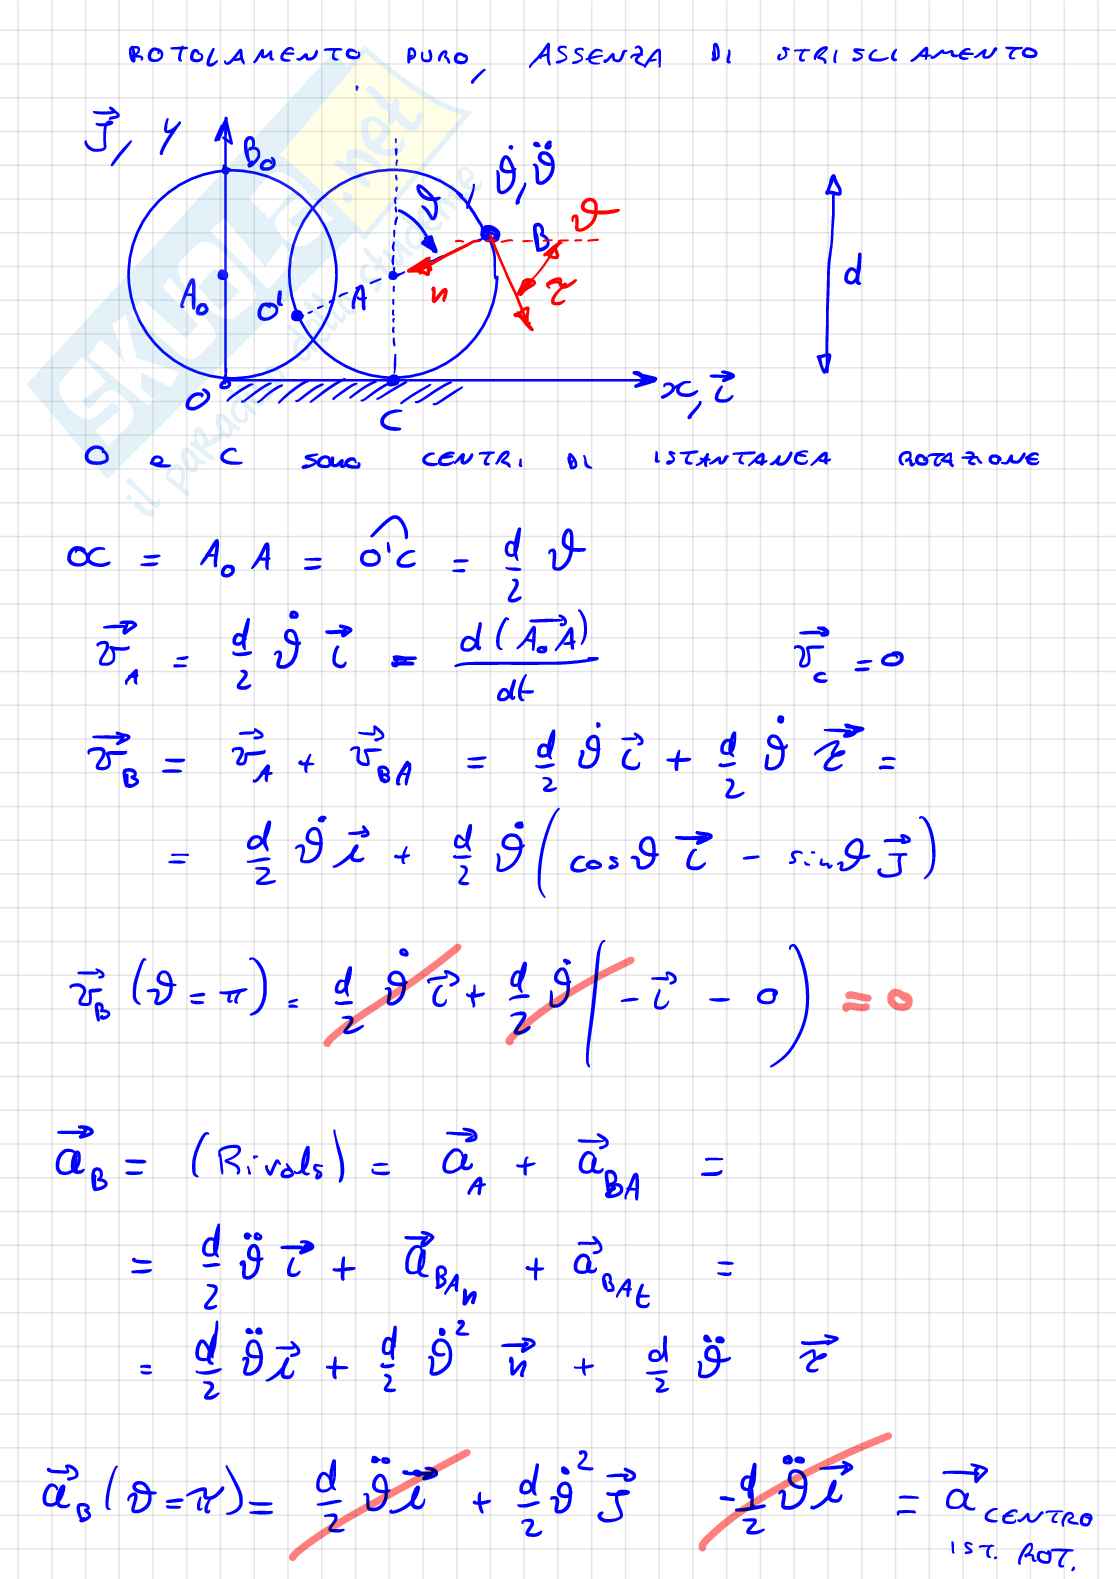 ROTOLAMENTO PURO, ASSENZA DI STRISCIAMENTO
J⃗, y
B₀
ϑ, ϑ̇, ϑ̈
B
ϑ
A₀
O'
A
n
τ
d
O
C
x, i⃗
SKUOLA.net
il paradiso dello studente
O e C sono CENTRI DI ISTANTANEA ROTAZIONE
OC = A₀A = O'C = d/2 ϑ
v⃗_A = d/2 ϑ̇ i⃗ = d(A₀A)/dt    v⃗_C = 0
v⃗_B = v⃗_A + v⃗_BA = d/2 ϑ̇ i⃗ + d/2 ϑ̇ τ⃗ =
= d/2 ϑ̇ i⃗ + d/2 ϑ̇ (cosϑ i⃗ - sinϑ J⃗)
v⃗_B (ϑ=π) = d/2 ϑ̇ i⃗ + d/2 ϑ̇ (-i⃗ - 0) = 0
a⃗_B = (Rivals) = a⃗_A + a⃗_BA =
= d/2 ϑ̈ i⃗ + a⃗_BAn + a⃗_BAt =
= d/2 ϑ̈ i⃗ + d/2 ϑ̇² n⃗ + d/2 ϑ̈ τ⃗
a⃗_B (ϑ=π) = d/2 ϑ̈ i⃗ + d/2 ϑ̇² J⃗ - d/2 ϑ̈ i⃗ = a⃗ CENTRO
IST. ROT.